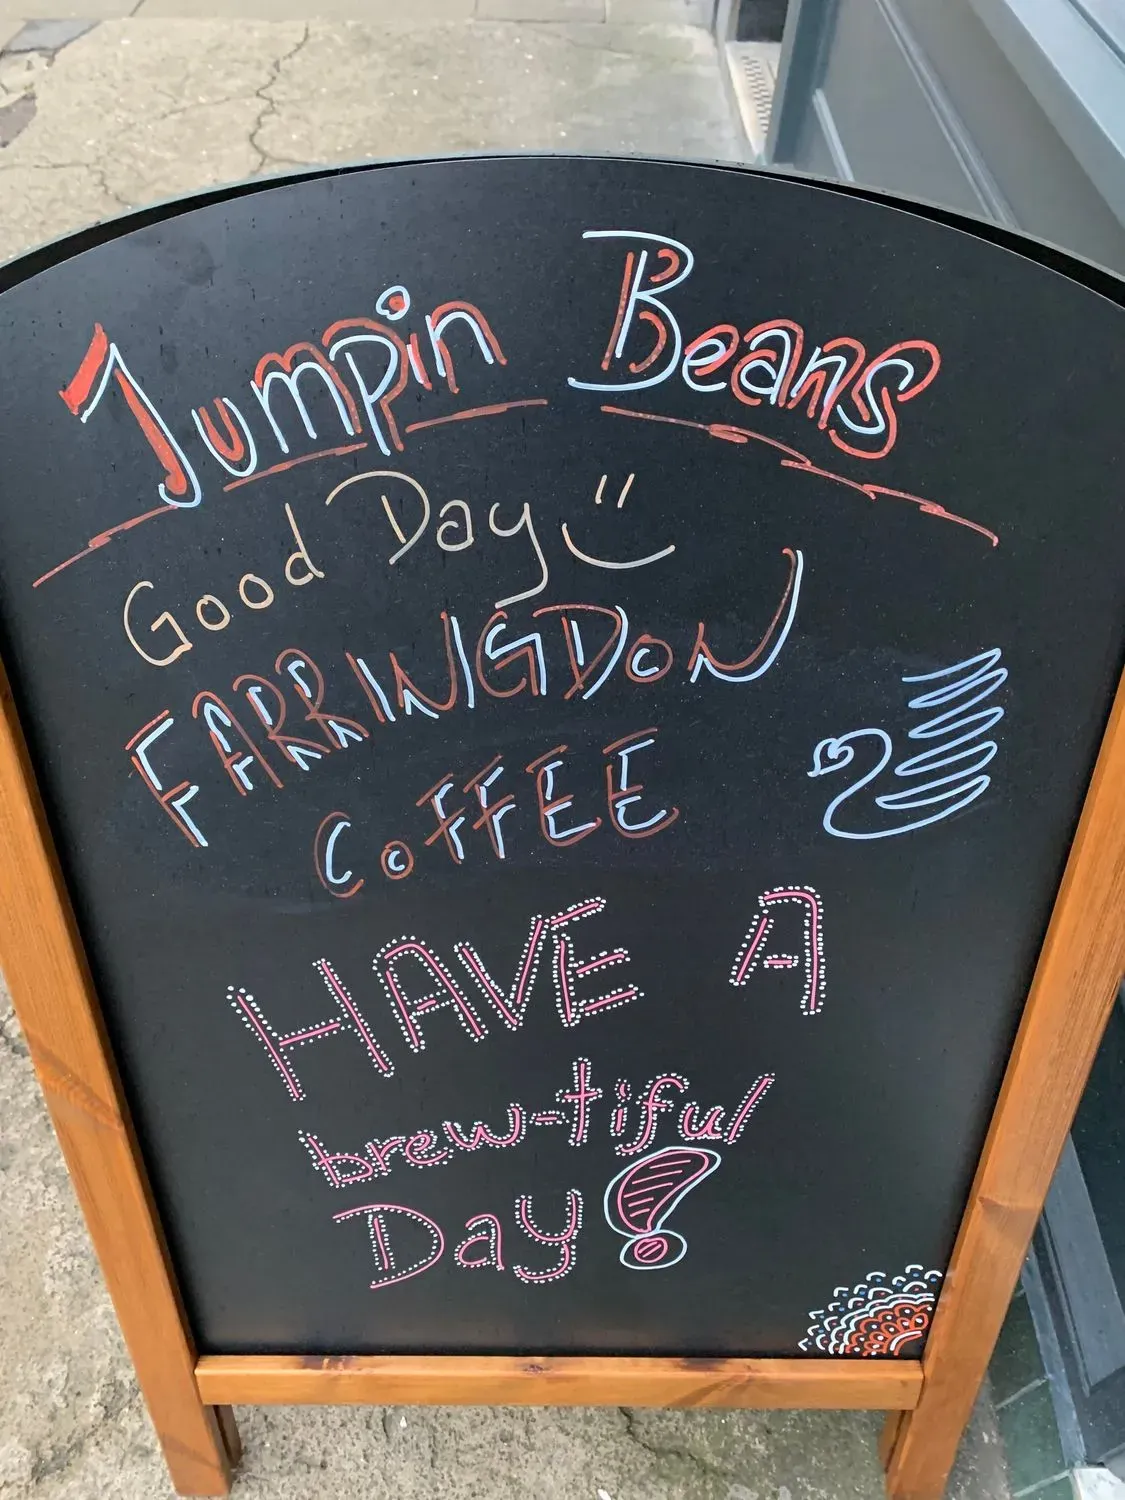 Jumpin Beans
Good Day
FARRINGDON
COFFEE
HAVE A
brew-tiful
Day!